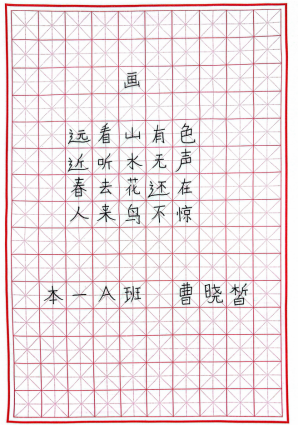 画
远看山有色
近听水无声
春去花还在
人来鸟不惊
本一A班 曹晓皙